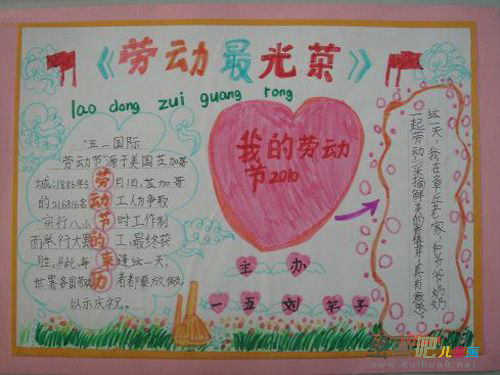 《劳动最光荣》
lao dong zui guang rong
五一国际
劳动节源于美国芝加哥
城.1886年5月1日,芝加哥
的216816名工人为争取
实行八小时工作制
而举行大罢工,最终获
胜.
世界各国
以示庆祝。
劳动节的来历
我的劳动
节2010
主办
一五
这一天,我在章丘老家,和爷爷奶奶
一起劳动,采摘鲜
真有意思。
www.huihua8.net